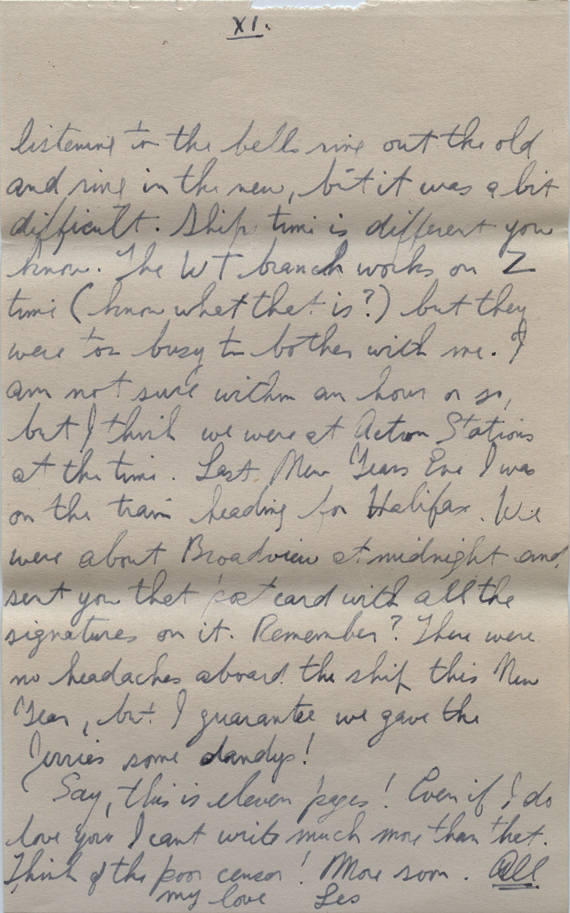 XI.
listening to the bells ring out the old
and ring in the new, but it was a bit
difficult. Ship time is different you
know. The WT branch works on Z
time (know what that is?) but they
were too busy to bother with me. I
am not sure within an hour or so,
but I think we were at Action Stations
at the time. Last New Years Eve I was
on the train heading for Halifax. We
were about Broadview at midnight and
sent you that post card with all the
signatures on it. Remember? There were
no headaches aboard the ship this New
Year, but I guarantee we gave the
Jerries some dandys!
Say, this is eleven pages! Even if I do
love you I cant write much more than that.
Think of the poor censor! More soon. All
my love Les